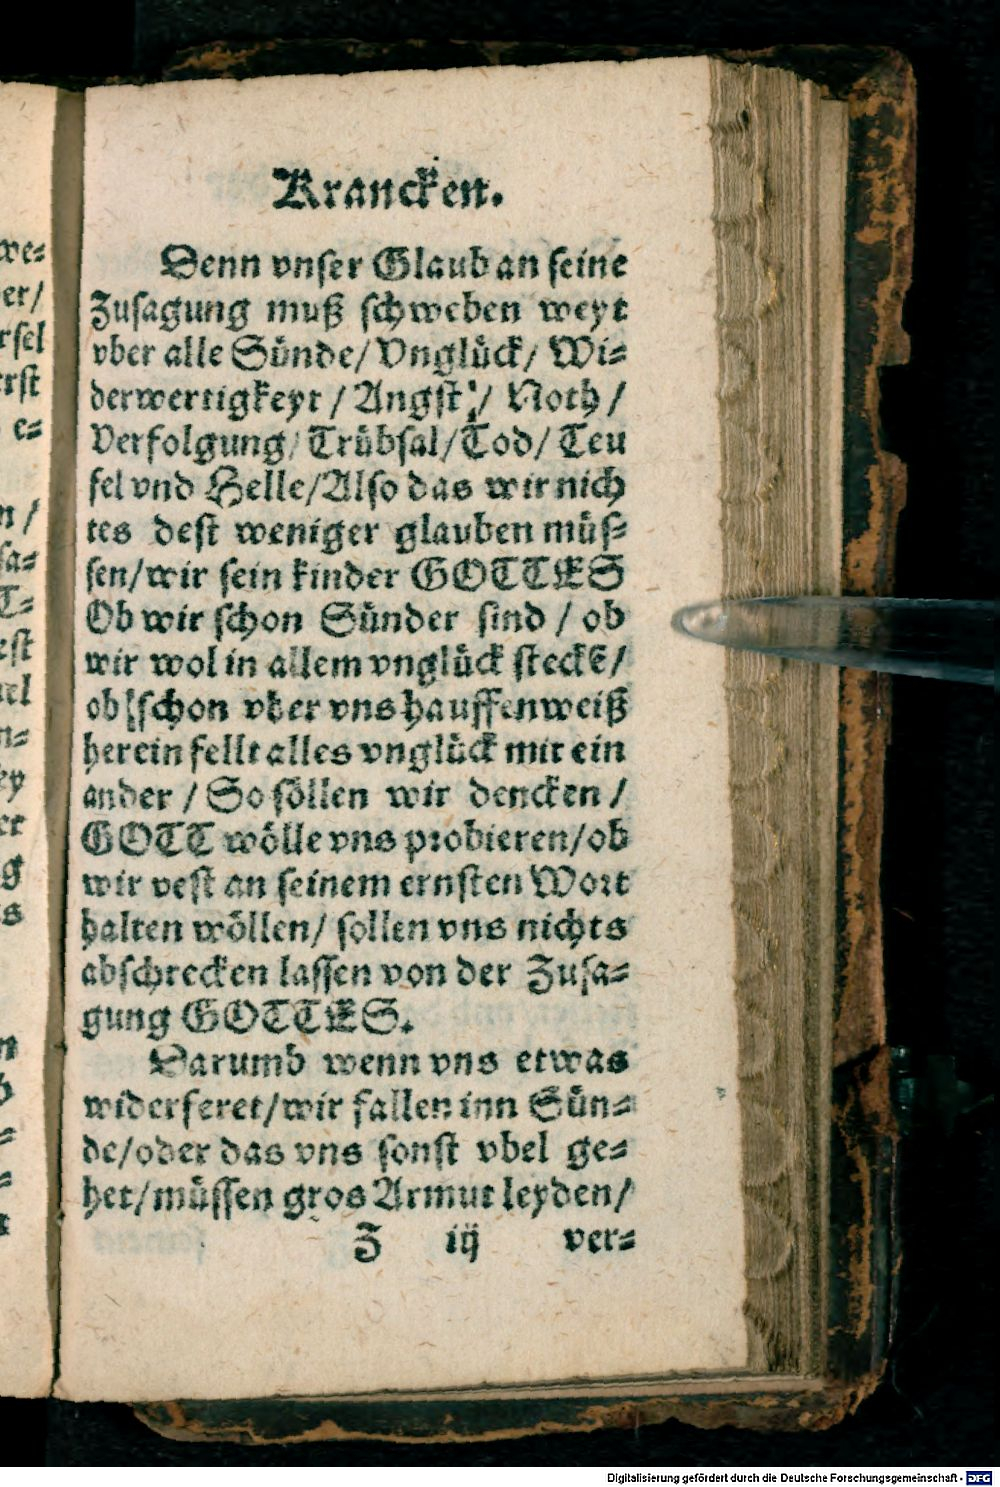 Krancken.
Denn vnser Glaub an seine
Zusagung muß schweben weyt
vber alle Sünde/ Vnglück/ Wi-
derwertigkeyt / Angst / Noth /
Verfolgung/ Trübsal/ Tod/ Teu
fel vnd Helle/ Also das wir nich
tes dest weniger glauben müs-
sen/ wir sein kinder GOTTES
Ob wir schon Sünder sind / ob
wir wol in allem vnglück steckē/
ob schon vber vns hauffenweiß
herein fellt alles vnglück mit ein
ander / So söllen wir dencken /
GOTT wölle vns probieren/ ob
wir vest an seinem ernsten Wort
halten wöllen/ sollen vns nichts
abschrecken lassen von der Zusa-
gung GOTTES.
Darumb wenn vns etwas
widerferet/ wir fallen inn Sün-
de/ oder das vns sonst vbel ge-
het/ müssen gros Armut leyden/
Z iij ver-
we-
er/
rsel
erst
e-
n /
sa-
T-
est
n-
ey
g
s
n
Digitalisierung gefördert durch die Deutsche Forschungsgemeinschaft - DFG